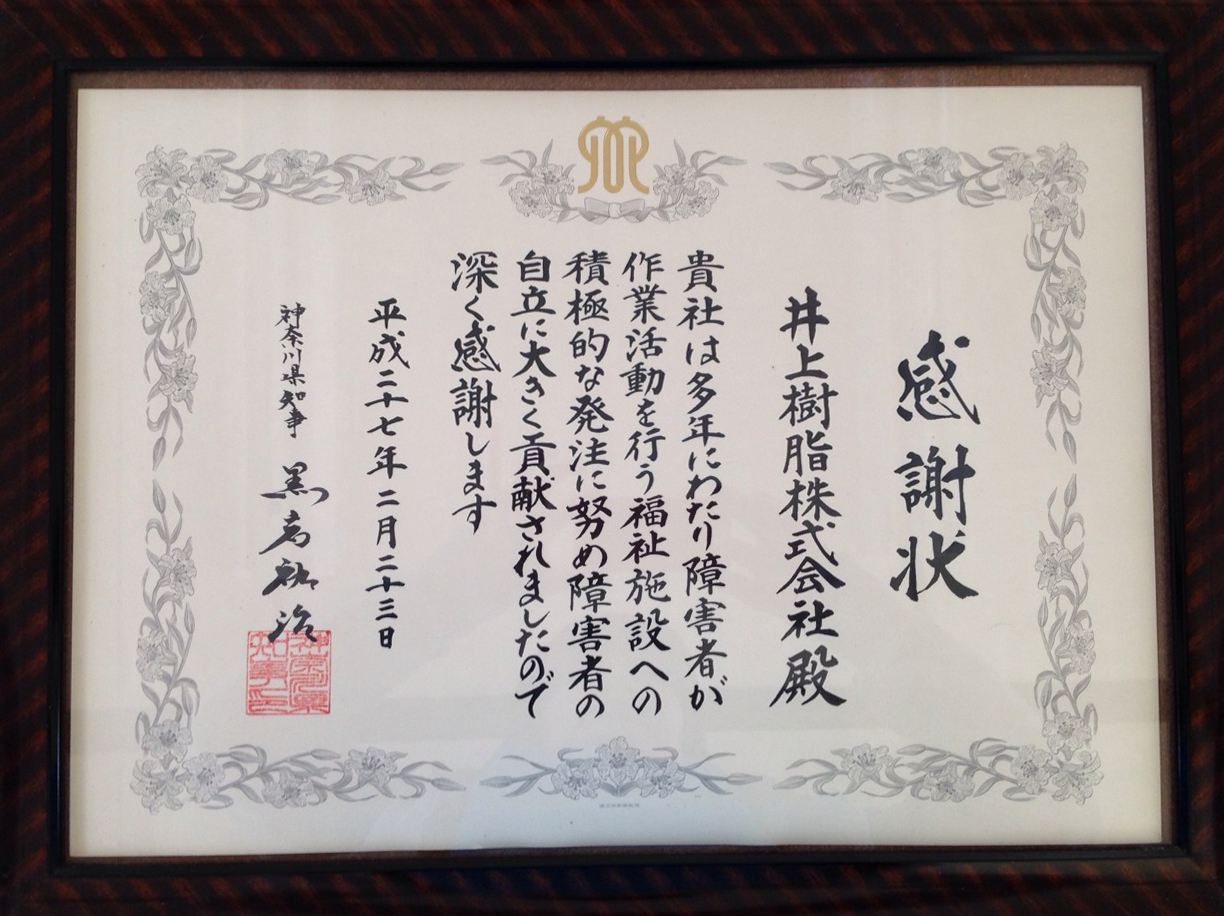 感謝状
井上樹脂株式会社殿
貴社は多年にわたり障害者が
作業活動を行う福祉施設への
積極的な発注に努め障害者の
自立に大きく貢献されましたので
深く感謝します
平成二十七年二月二十三日
神奈川県知事 黒岩祐治